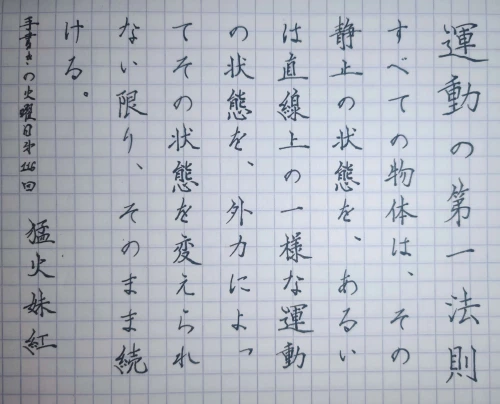 運動の第一法則
すべての物体は、その
静止の状態を、あるい
は直線上の一様な運動
の状態を、外力によっ
てその状態を変えられ
ない限り、そのまま続
ける。
手書きの火曜日第116回
猛火妹紅